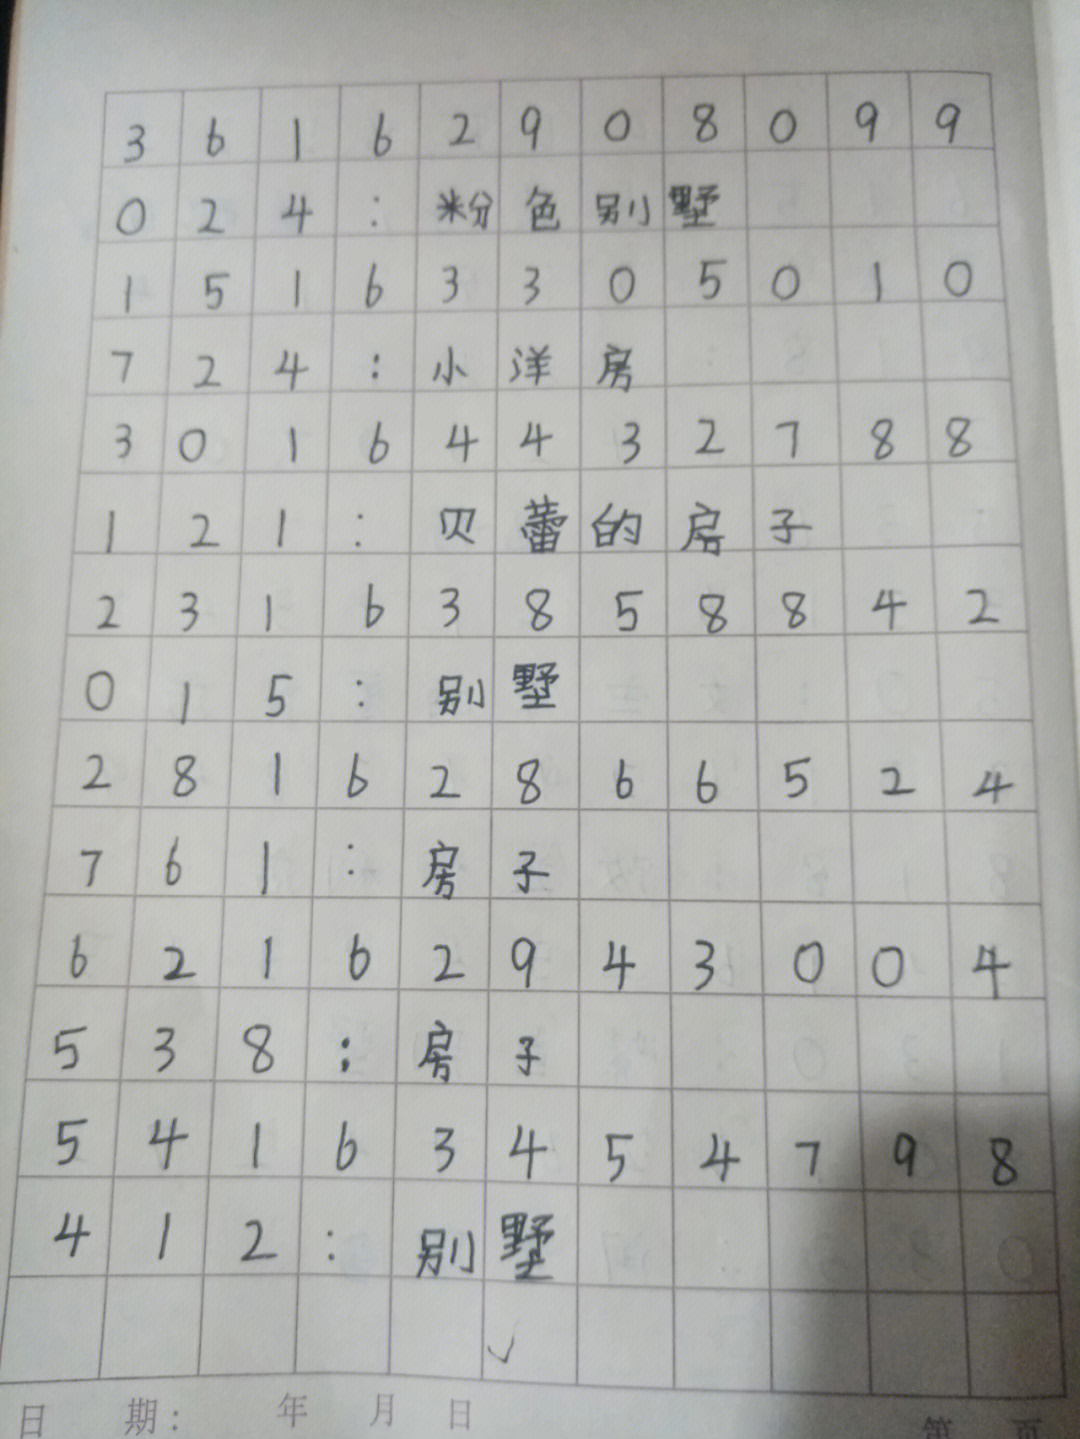 36162908099
024:粉色别墅
15163305010
724:小洋房
30164432788
121:贝蕾的房子
23163858842
015:别墅
28162866524
761:房子
62162943004
538:房子
54163454798
412:别墅
日期: 年 月 日 第 页